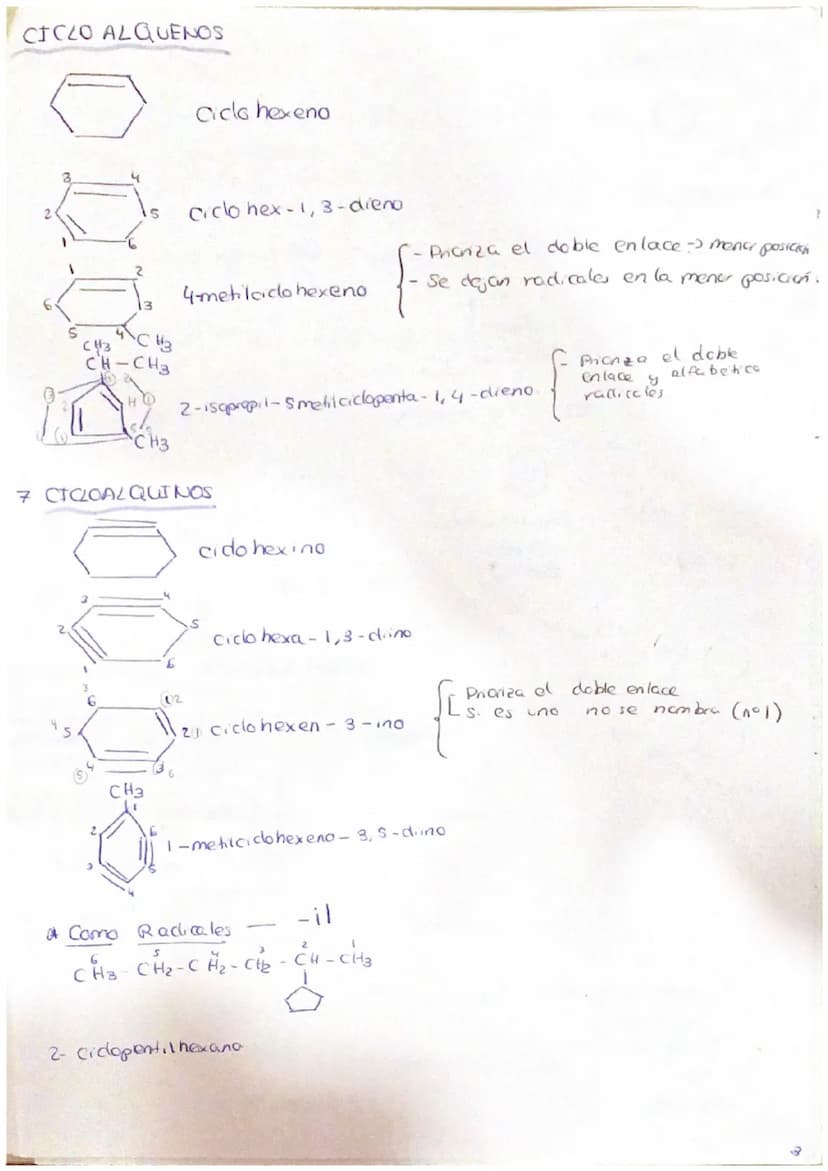 CICLO ALQUENOS
Ciclo hexeno
3 4
2 5
1 6
Ciclo hex-1,3-dieno
1 2
6 3
5 4
CH3
4-metilciclohexeno
- Prioriza el doble enlace -> menor posición
- Se dejan radicales en la menor posición.
CH3
CH-CH3
H
CH3
2-isopropil-5metilciclopenta-1,4-dieno
- Prioriza el doble
enlace y alfabetico
radicales
7 CICLOALQUINOS
ciclohexino
3 4
2 5
1 6
Ciclo hexa-1,3-diino
3
6 1 2
4 5 2 1
5 4 3 6
Ciclohexen-3-ino
Prioriza el doble enlace
si es uno no se nombra (nº1)
CH3
1
2 6
3 5
4
1-metilciclohexeno-3,5-diino
Como Radicales — -il
6 5 4 3 2 1
CH3-CH2-CH2-CH2-CH-CH3
2-Ciclopentilhexano
8